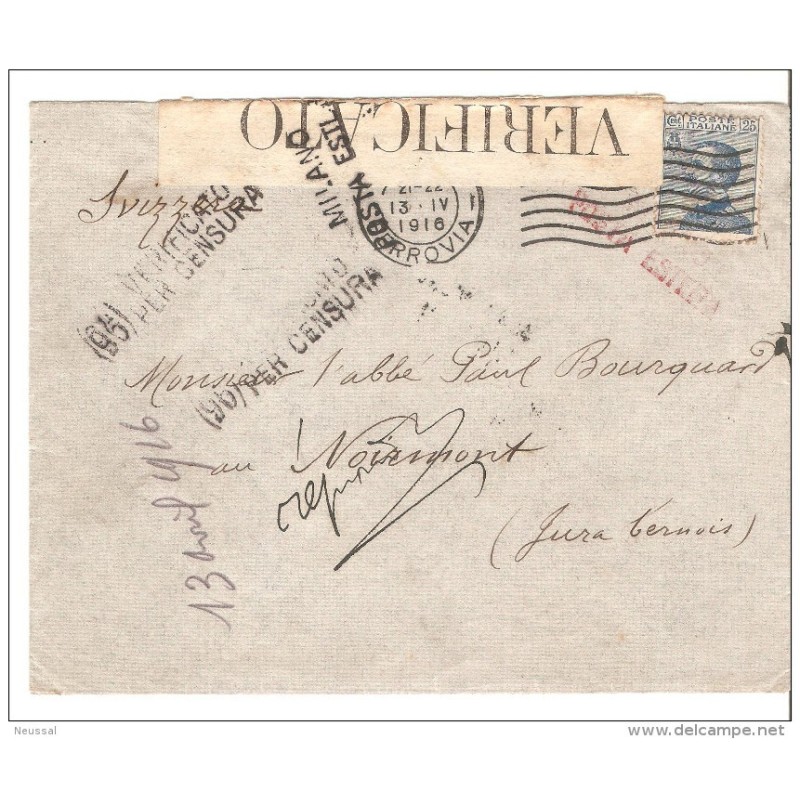 VERIFICATO
Cmi. POSTE ITALIANE 25
Svizzera
MILANO
POSTA ESTE
21-22
13·IV
1916
FERROVIA
POSTA ESTERA
(95) VERIFICATO
PER CENSURA
(95) PER CENSURA
Monsieur l'abbé Paul Bourquard
au Noirmont
(Jura bernois)
13 avril 1916
Neussal
delcampe.net